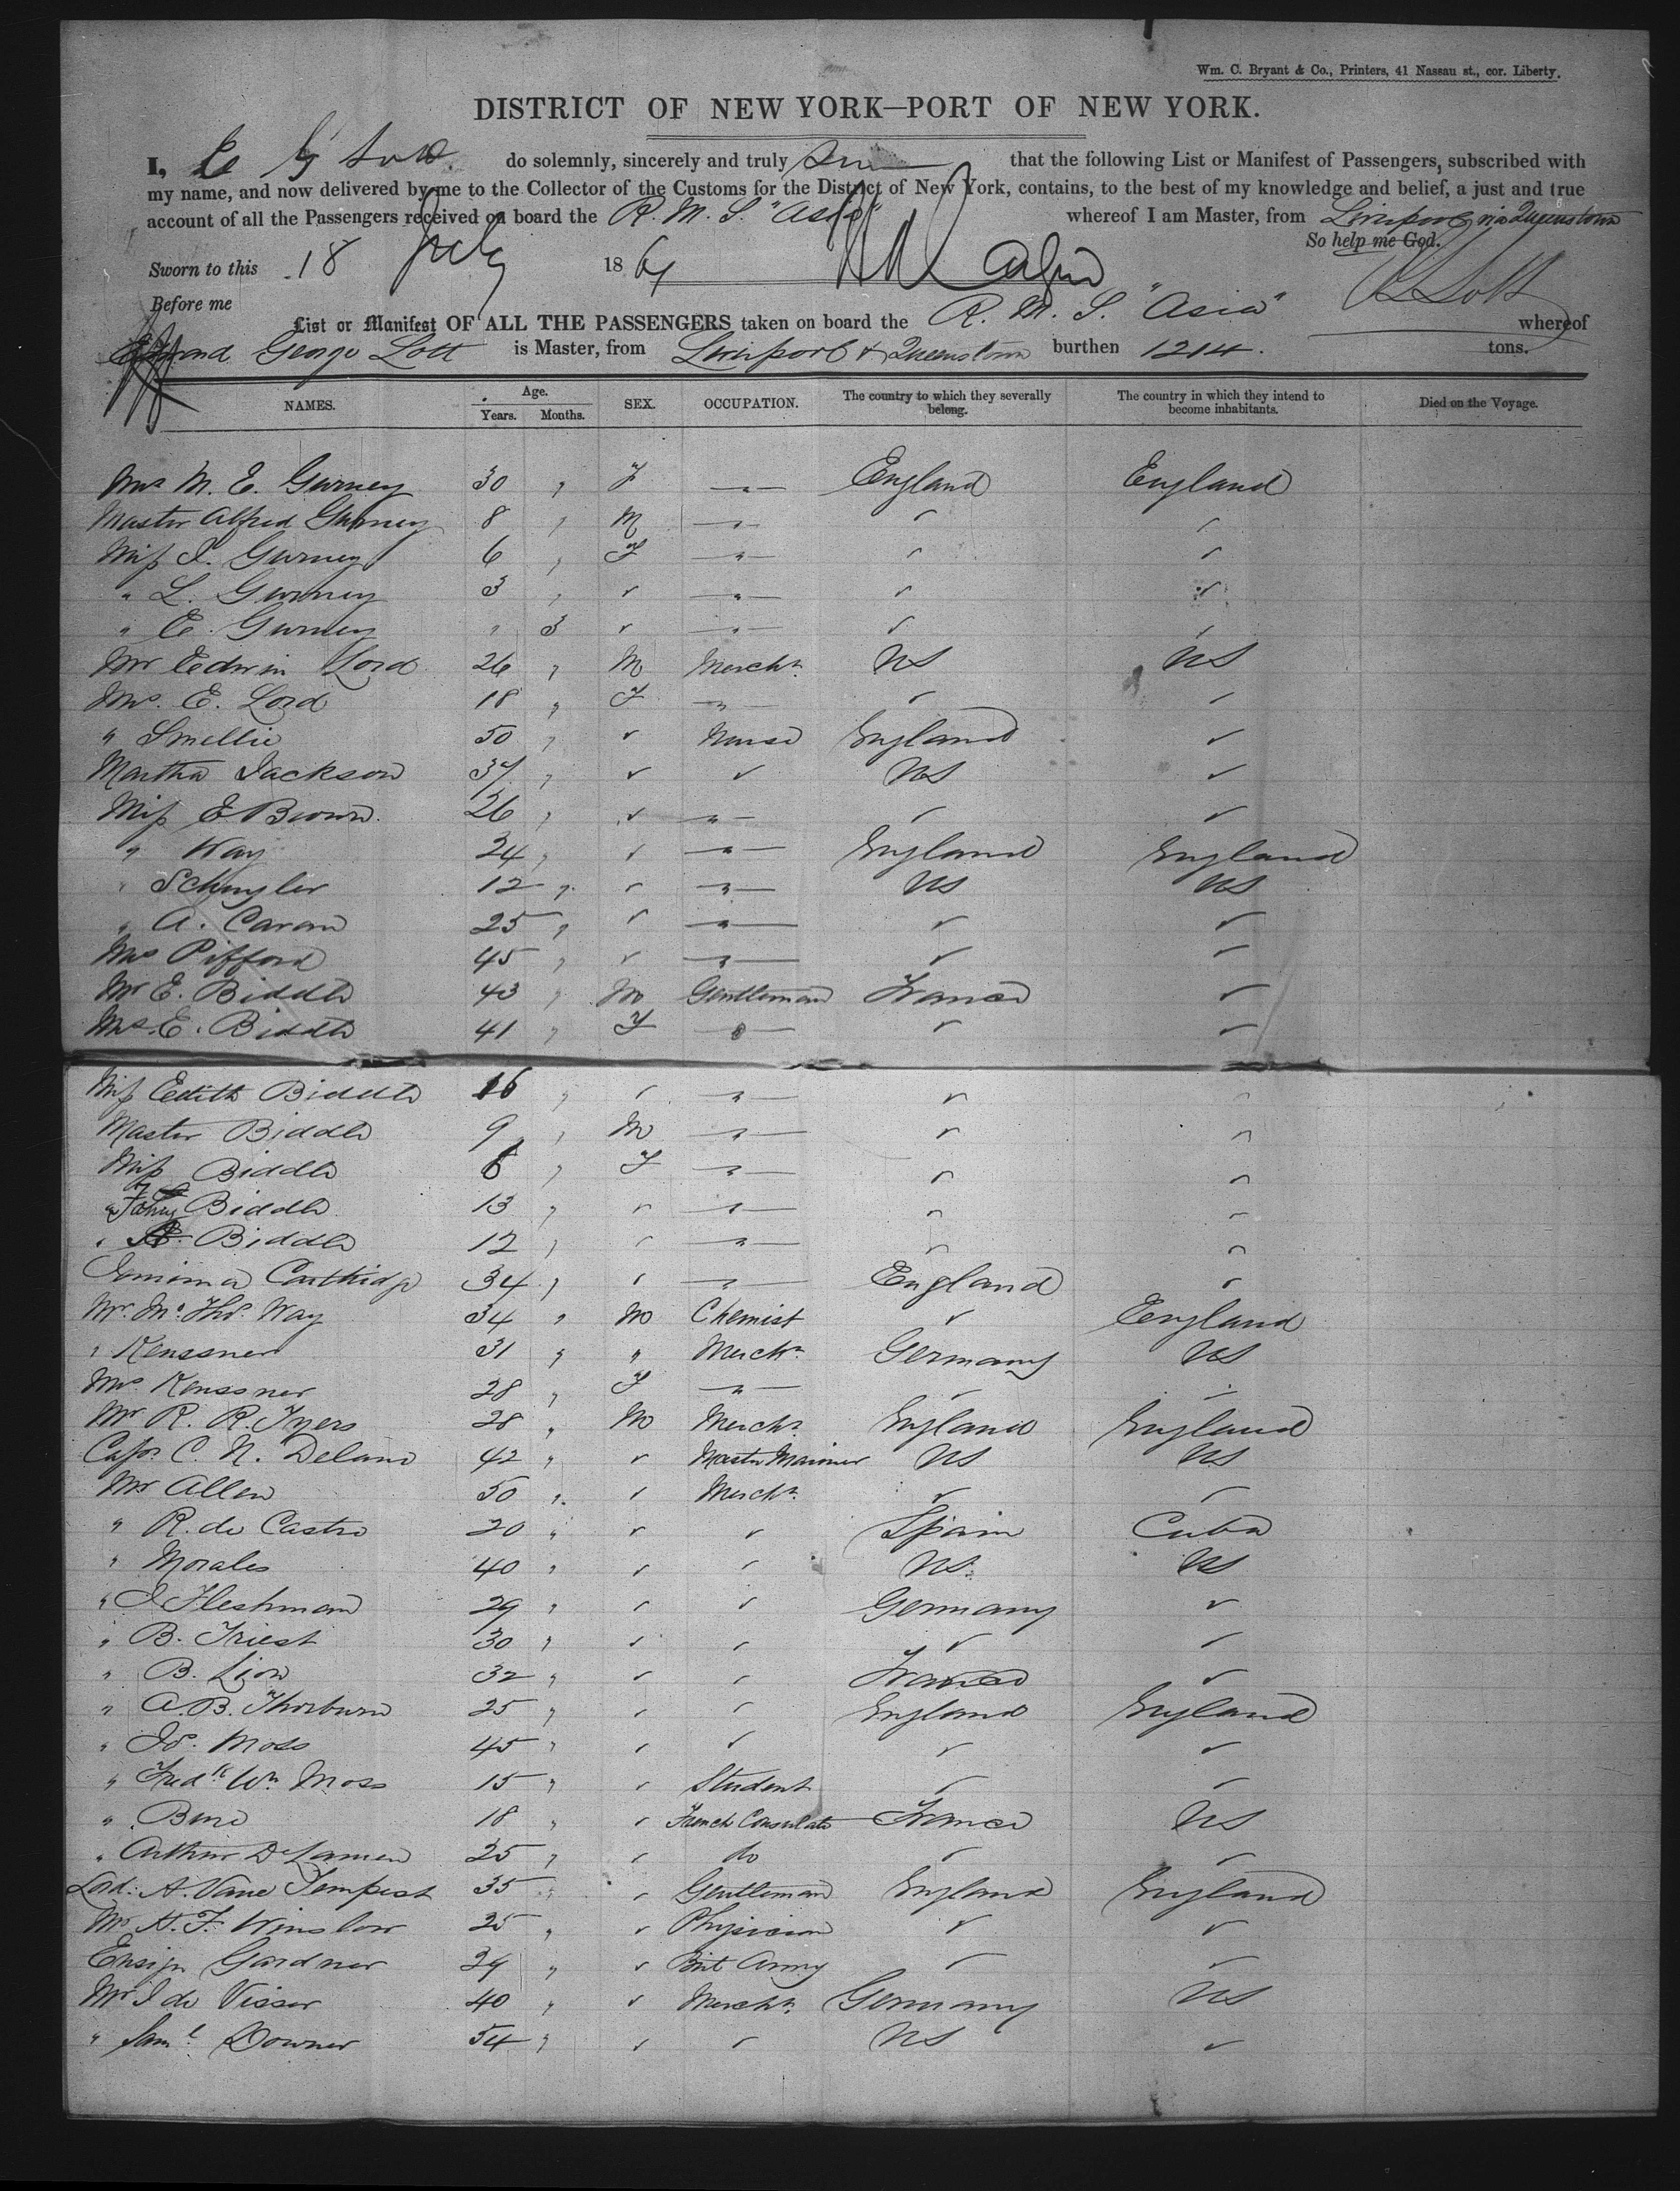 Wm. C. Bryant & Co., Printers, 41 Nassau st., cor. Liberty.
DISTRICT OF NEW YORK—PORT OF NEW YORK.
I, E G Lott do solemnly, sincerely and truly that the following List or Manifest of Passengers, subscribed with
my name, and now delivered by me to the Collector of the Customs for the District of New York, contains, to the best of my knowledge and belief, a just and true
account of all the Passengers received on board the R. M. S. "Asia" whereof I am Master, from Liverpool via Queenstown
So help me God.
Sworn to this 18 July 1864
E G Lott
Before me
List or Manifest OF ALL THE PASSENGERS taken on board the R. M. S. "Asia" whereof
George Lott is Master, from Liverpool & Queenstown burthen 1214. tons.
NAMES. Age. Years. Months. SEX. OCCUPATION. The country to which they severally belong. The country in which they intend to become inhabitants. Died on the Voyage.
Mrs M. E. Gurney 30 " F —"— England England
Master Alfred Gurney 8 " M —"— ✓ ✓
Miss I. Gurney 6 " F —"— ✓ ✓
" L. Gurney 3 " ✓ —"— ✓ ✓
" E. Gurney " 3 ✓ —"— ✓ ✓
Mr Edwin Lord 26 " M Mercht US US
Mrs. E. Lord 18 " F —"— ✓ ✓
" Smellie 50 " ✓ Nurse England ✓
Martha Jackson 37 " ✓ ✓ US ✓
Miss E Brown 26 " ✓ —"— ✓ ✓
" Way 24 " ✓ —"— England England
" Schuyler 12 " ✓ —"— US US
" A. Caran 25 " ✓ —"— ✓ ✓
Mrs Pifford 45 " ✓ —"— ✓ ✓
Mr E. Biddle 43 " M Gentleman France ✓
Mrs. E. Biddle 41 " F —"— ✓ ✓
Miss Edith Biddle 16 " ✓ —"— ✓ ✓
Master Biddle 9 " M —"— ✓ ✓
Miss Biddle 6 " F —"— ✓ ✓
" Biddle 13 " ✓ —"— ✓ ✓
" Biddle 12 " ✓ —"— ✓ ✓
Jemima 34 " ✓ —"— England ✓
Mr. Thos. Way 34 " M Chemist ✓ England
" Kenssner 31 " " Mercht Germany US
Mrs Kenssner 28 " F —"— ✓ ✓
Mr R. R. Tyers 28 " M Mercht England England
Capt C. N. Delano 42 " ✓ Master Mariner US US
Mr Allen 50 " ✓ Mercht ✓ ✓
" R. de Castro 20 " ✓ ✓ Spain Cuba
" Morales 40 " ✓ ✓ US US
" I Fleshman 29 " ✓ ✓ Germany ✓
" B. Triest 30 " ✓ ✓ ✓ ✓
" B. Lion 32 " ✓ ✓ France ✓
" A. B. Thorburn 25 " ✓ ✓ England England
" Js. Moss 45 " ✓ ✓ ✓ ✓
" Fredk Wm Moss 15 " ✓ Student ✓ ✓
" 18 " ✓ French Consulate France US
" Arthur 25 " ✓ do ✓ ✓
Lord A. Vane Tempest 35 " ✓ Gentleman England England
Mr H. F. Winslow 25 " ✓ Physician ✓ ✓
Ensign Gardner 24 " ✓ Brit Army ✓ ✓
Mr I de Visser 40 " ✓ Mercht Germany US
" Saml Downer 54 " ✓ ✓ US ✓